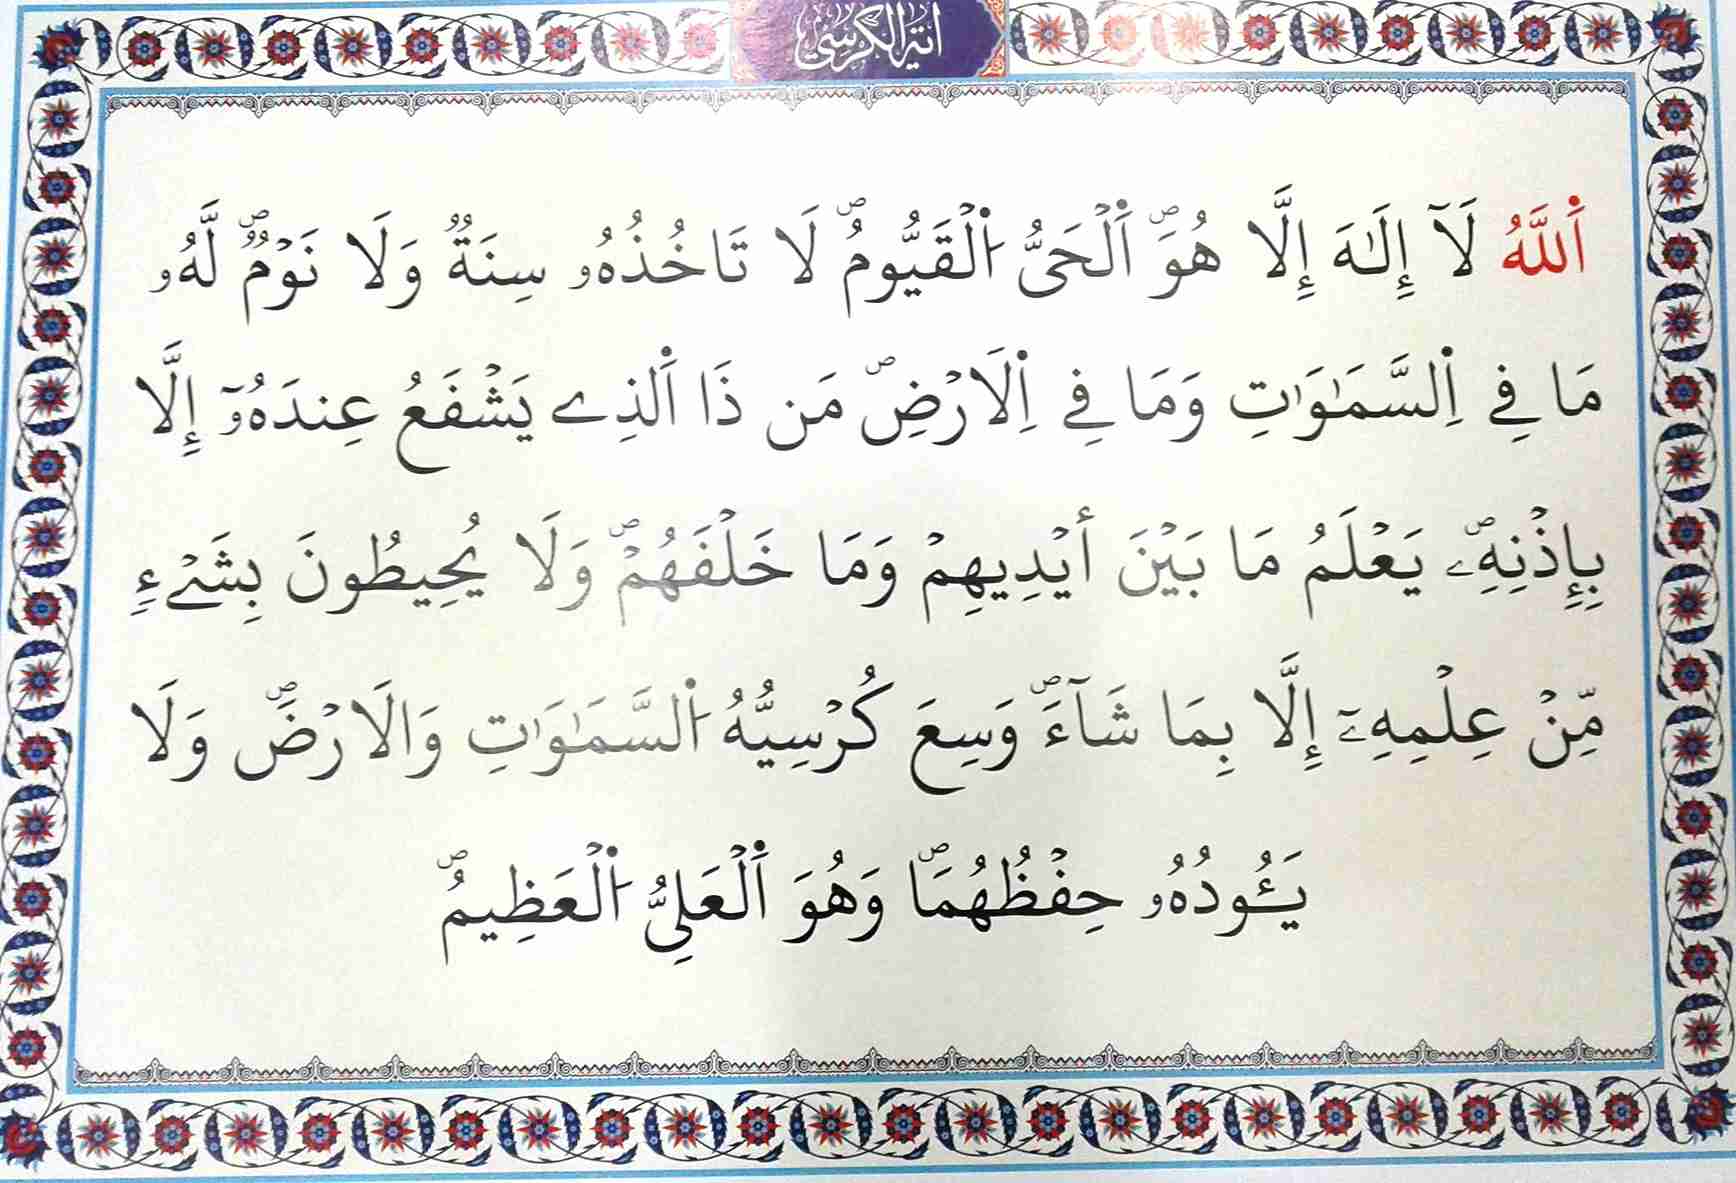 ءاية الكرسي
اَللَّهُ لَآ إِلَٰهَ إِلَّا هُوَۖ اَلْحَيُّ اُلْقَيُّومُۖ لَا تَاخُذُهُۥ سِنَةٌ وَلَا نَوْمٌۖ لَّهُۥ
مَا فِے اِلسَّمَٰوَٰتِ وَمَا فِے اِلَارْضِۖ مَن ذَا اَلذِے يَشْفَعُ عِندَهُۥٓ إِلَّا
بِإِذْنِهِۦۖ يَعْلَمُ مَا بَيْنَ أَيْدِيهِمْ وَمَا خَلْفَهُمْۖ وَلَا يُحِيطُونَ بِشَےْءٖ
مِّنْ عِلْمِهِۦٓ إِلَّا بِمَا شَآءَۖ وَسِعَ كُرْسِيُّهُ اُلسَّمَٰوَٰتِ وَالَارْضَۖ وَلَا
يَـُٔودُهُۥ حِفْظُهُمَاۖ وَهُوَ اَلْعَلِيُّ اُلْعَظِيمُۖ